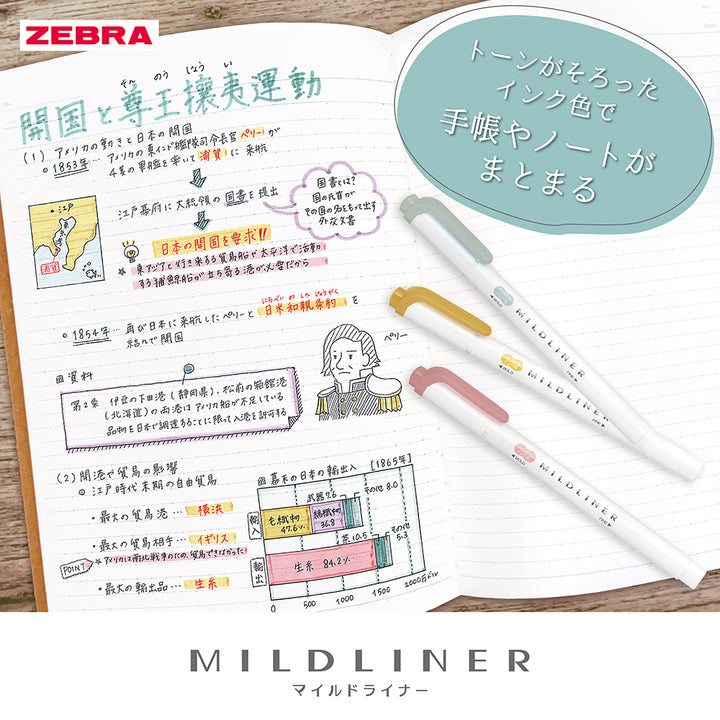 ZEBRA
トーンがそろった
インク色で
手帳やノートが
まとまる
そん のう じょう い
開国と尊王攘夷運動
(1) アメリカの動きと日本の開国
1853年… アメリカの東インド艦隊司令長官 ペリー が
4隻の軍艦を率いて 浦賀 に 来航
江戸幕府に大統領の 国書 を 提出
国書とは?
国の元首が
その国の名をもって出す
外交文書
江戸
東京湾
浦賀
日本の開国を要求!!
★ 東アジアと行き来する貿易船や太平洋で活動
する捕鯨船が立ち寄る港が必要だから
にちべい わ しんじょうやく
1854年… 再び日本に来航したペリーと 日米和親条約 を
結んで開国
ペリー
資料
第2条 伊豆の下田港(静岡県)、松前の箱館港
(北海道)の両港はアメリカ船が不足している
品物を日本で調達することに限って入港を許可する
(2) 開港や貿易の影響
江戸時代末期の自由貿易
・最大の貿易港… 横浜
・最大の貿易相手… イギリス
POINT
★アメリカは南北戦争のため、貿易できなかった!
・最大の輸出品… 生糸
幕末の日本の輸出入 [1865年]
武器7.6
その他 8.0
輸入
毛織物
47.6%
綿織物
36.8
茶 10.5
その他
5.3
輸出
生糸 84.2%
0 500 1000 1500 2000万ドル
BOLD MILDLINER FINE
BOLD MILDLINER FINE
BOLD MILDLINER FINE
MILDLINER
マイルドライナー